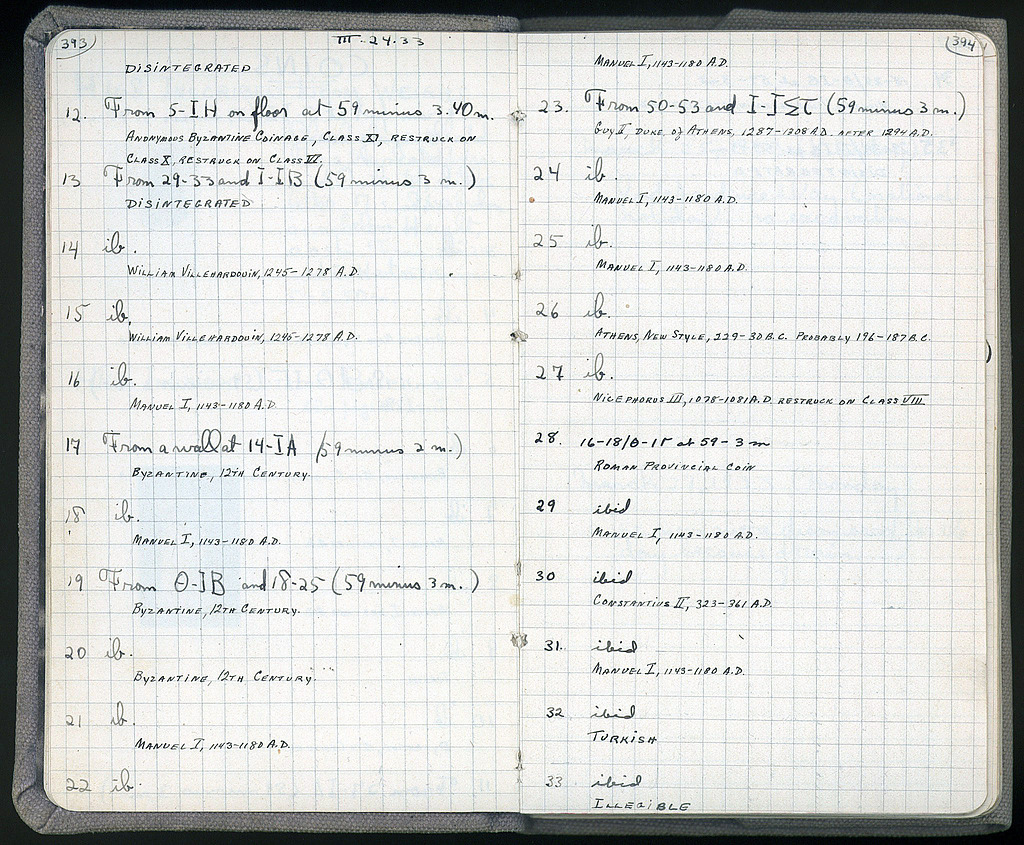 393
III-24-33
DISINTEGRATED
12. From 5-IH on floor at 59 minus 3.40 m.
ANONYMOUS BYZANTINE COINAGE, CLASS XI, RESTRUCK ON
CLASS X, RESTRUCK ON CLASS VI.
13 From 29-33 and I-IB (59 minus 3 m.)
DISINTEGRATED
14 ib.
WILLIAM VILLEHARDOUIN, 1245-1278 A.D.
15 ib.
WILLIAM VILLEHARDOUIN, 1245-1278 A.D.
16 ib.
MANUEL I, 1143-1180 A.D.
17 From a wall at 14-IA (59 minus 2 m.)
BYZANTINE, 12TH CENTURY.
18 ib.
MANUEL I, 1143-1180 A.D.
19 From Θ-IB and 18-25 (59 minus 3 m.)
BYZANTINE, 12TH CENTURY.
20 ib.
BYZANTINE, 12TH CENTURY.
21 ib.
MANUEL I, 1143-1180 A.D.
22 ib.
394
MANUEL I, 1143-1180 A.D.
23. From 50-53 and (59 minus 3 m.)
GUY II, DUKE OF ATHENS, 1287-1308 A.D. AFTER 1294 A.D.
24 ib.
MANUEL I, 1143-1180 A.D.
25 ib.
MANUEL I, 1143-1180 A.D.
26 ib.
ATHENS, NEW STYLE, 229-30 B.C. PROBABLY 196-187 B.C.
27 ib.
NICEPHORUS III, 1078-1081 A.D. RESTRUCK ON CLASS VIII
28. 16-18/Θ-IΓ at 59-3 m
ROMAN PROVINCIAL COIN
29 ibid
MANUEL I, 1143-1180 A.D.
30 ibid
CONSTANTIUS II, 323-361 A.D.
31. ibid
MANUEL I, 1143-1180 A.D.
32 ibid
TURKISH
33 ibid
ILLEGIBLE